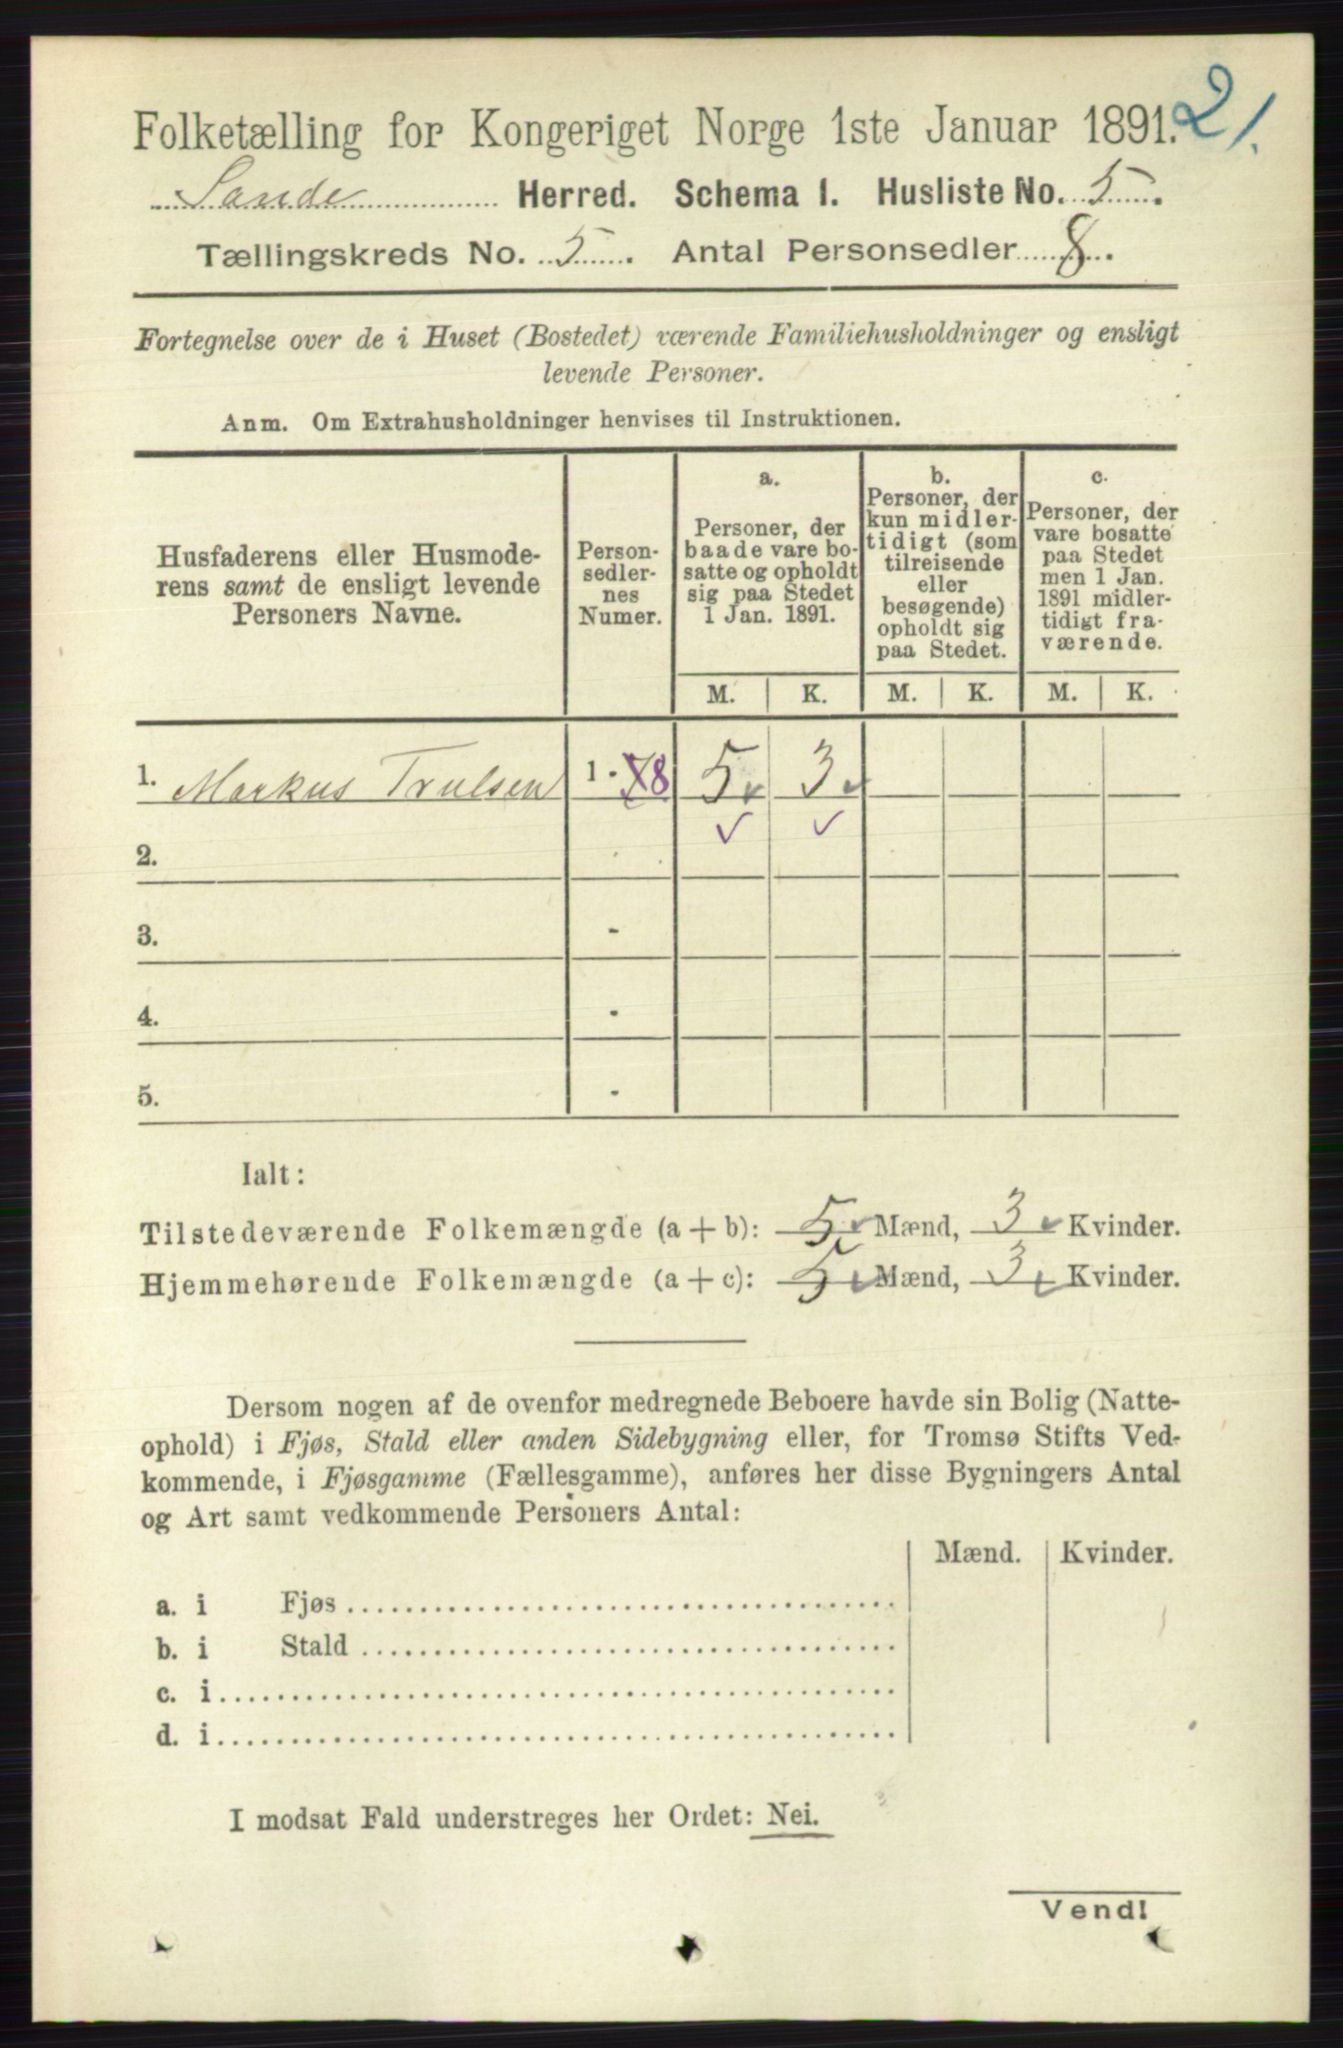 Folketælling for Kongeriget Norge 1ste Januar 1891.
21.
Sande Herred. Schema 1. Husliste No. 5.
Tællingskreds No. 5. Antal Personsedler 8.
Fortegnelse over de i Huset (Bostedet) værende Familiehusholdninger og ensligt
levende Personer.
Anm. Om Extrahusholdninger henvises til Instruktionen.
Husfaderens eller Husmode-
rens samt de ensligt levende
Personers Navne.
Person-
sedler-
nes
Numer.
a.
Personer, der
baade vare bo-
satte og opholdt
sig paa Stedet
1 Jan. 1891.
b.
Personer, der
kun midler-
tidigt (som
tilreisende
eller
besøgende)
opholdt sig
paa Stedet.
c.
Personer, der
vare bosatte
paa Stedet
men 1 Jan.
1891 midler-
tidigt fra-
værende.
M. K. M. K. M. K.
1. Markus Trulsen 1 - 8 5 3
2.
3. -
4. -
5. -
Ialt:
Tilstedeværende Folkemængde (a + b): 5 Mænd, 3 Kvinder.
Hjemmehørende Folkemængde (a + c): 5 Mænd, 3 Kvinder.
Dersom nogen af de ovenfor medregnede Beboere havde sin Bolig (Natte-
ophold) i Fjøs, Stald eller anden Sidebygning eller, for Tromsø Stifts Ved-
kommende, i Fjøsgamme (Fællesgamme), anføres her disse Bygningers Antal
og Art samt vedkommende Personers Antal:
Mænd. Kvinder.
a. i Fjøs
b. i Stald
c. i
d. i
I modsat Fald understreges her Ordet: Nei.
Vend!